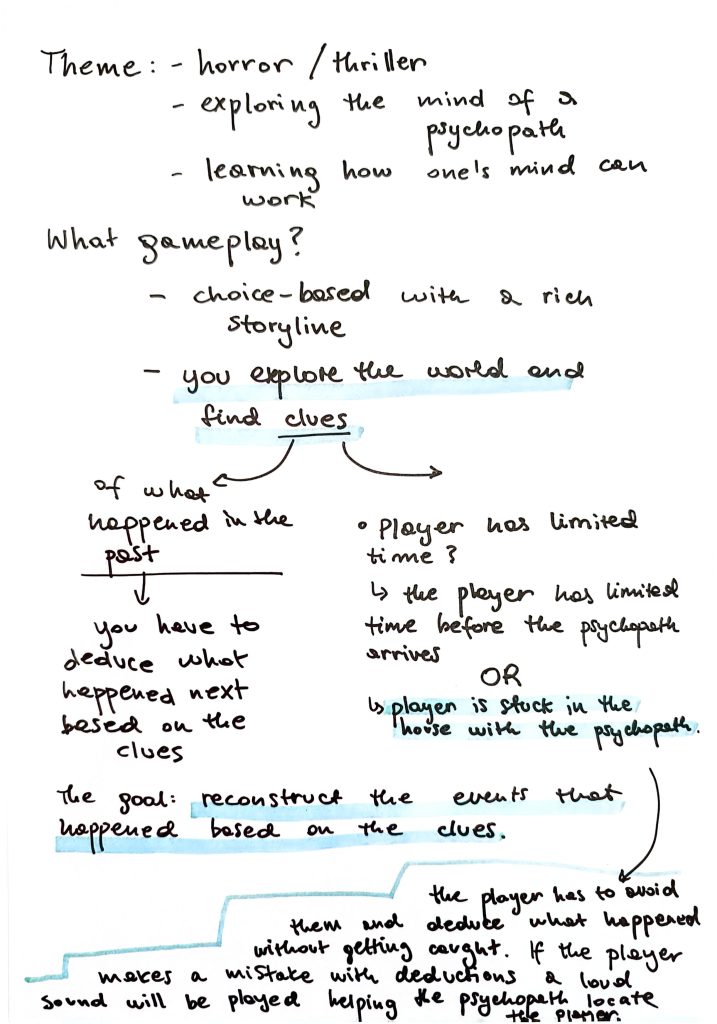 Theme: - horror / thriller
- exploring the mind of a
psychopath
- learning how one's mind can
work
What gameplay?
- choice-based with a rich
storyline
- you explore the world and
find clues
of what
happened in the
past
you have to
deduce what
happened next
based on the
clues
• Player has limited
time?
↳ the player has limited
time before the psychopath
arrives
OR
↳ player is stuck in the
house with the psychopath.
The goal: reconstruct the events that
happened based on the clues.
the player has to avoid
them and deduce what happened
without getting caught. If the player
makes a mistake with deductions a loud
sound will be played helping the psychopath locate
the player.